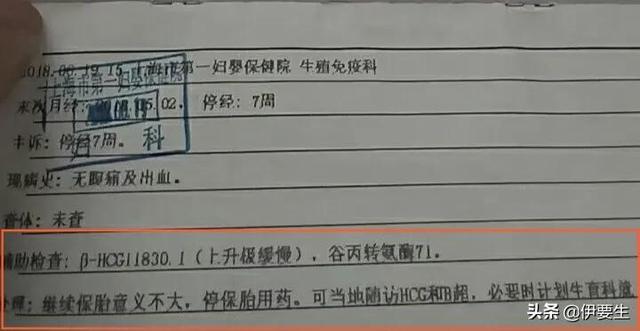 2018.06.19 15 上海市第一妇婴保健院 生殖免疫科
上海市第一妇婴保健院
末次月经: 05.02. 停经: 7周
主诉: 停经7周。
妇 科
现病史: 无腹痛及出血。
查体: 未查
辅助检查: β-HCG11830.1（上升级缓慢），谷丙转氨酶71.
处理: 继续保胎意义不大，停保胎用药。可当地随访HCG和B超，必要时计划生育科随
头条 @伊要生